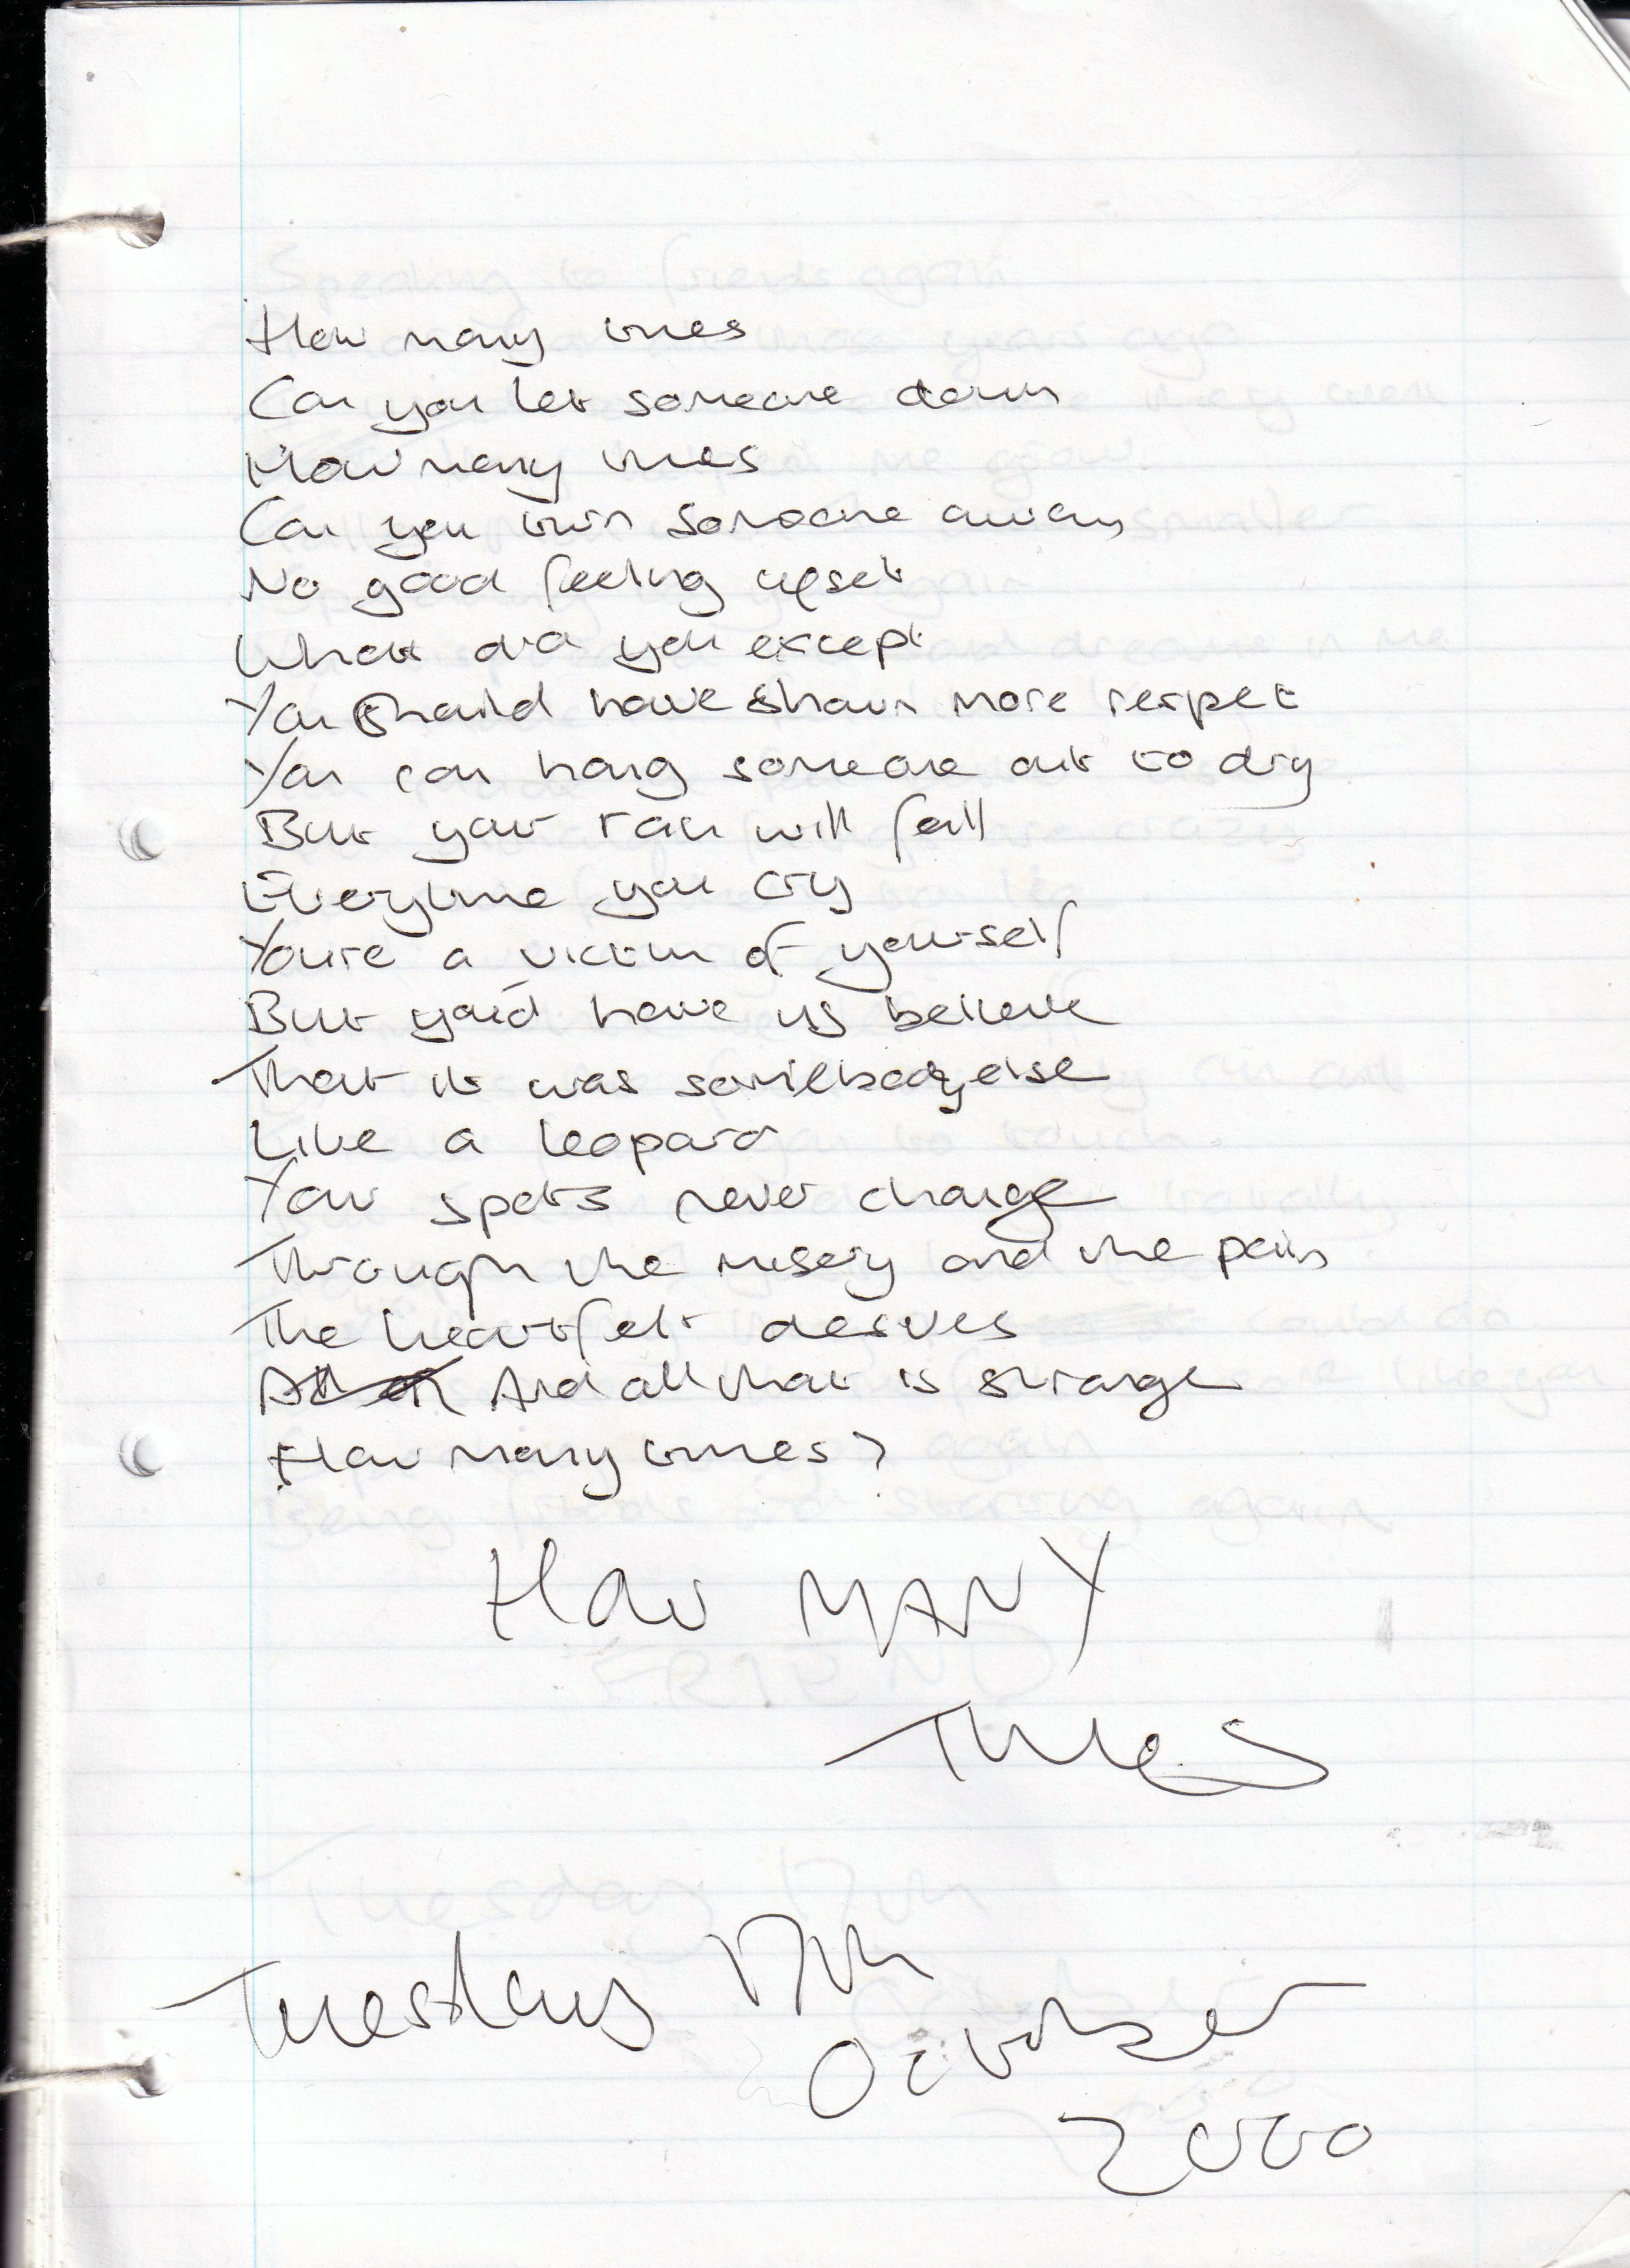 How many times
Can you let someone down
How many times
Can you turn someone away
No good feeling upset
What did you except
You should have shown more respet
You can hang someone out to dry
But your rain will fall
Everytime you cry
You're a victim of yourself
But you'd have us believe
That it was somebody else
Like a leopard
Your spots never change
Through the misery and the pain
The heartfelt desires
And all that is strange
How many times?
How MANY
Times
Tuesday 17th
October
2000